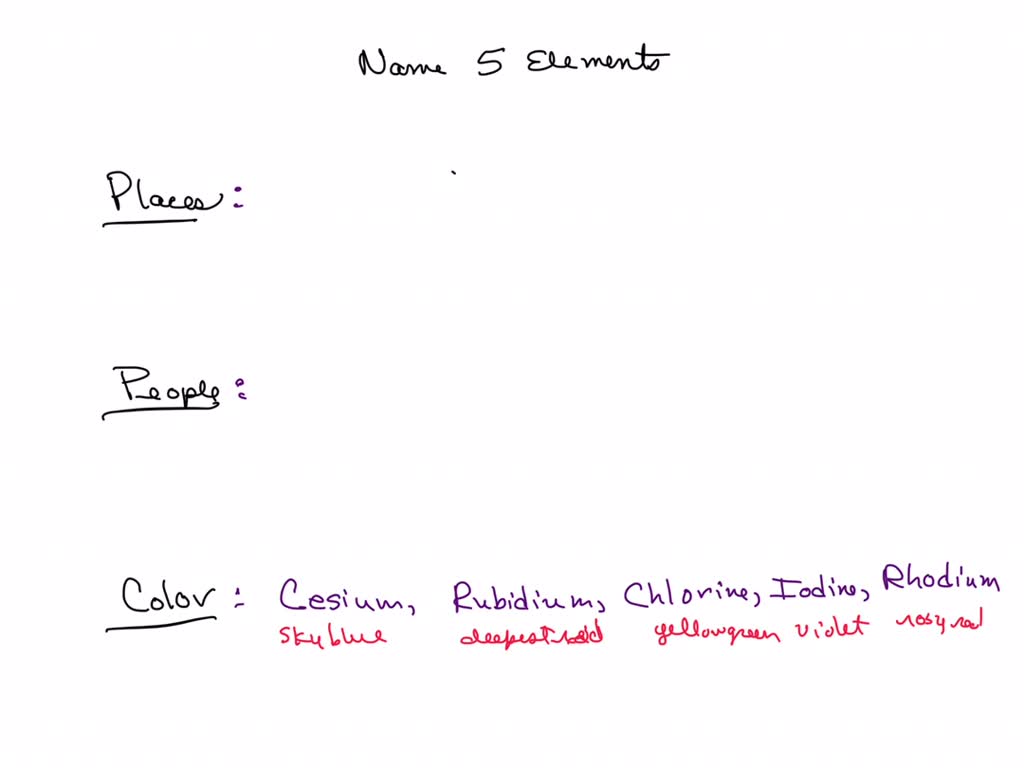 Name 5 Elements
Places:
People:
Color: Cesium, Rubidium, Chlorine, Iodine, Rhodium
skyblue deepest red yellowgreen violet rosy red